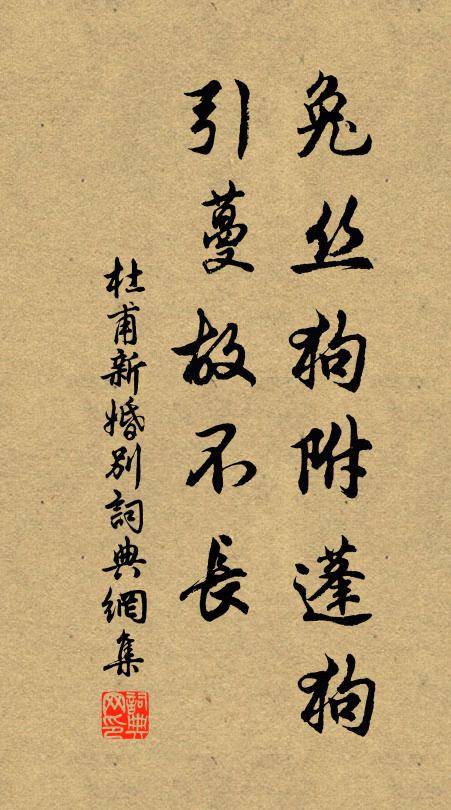 兔丝狗附蓬狗
引蔓故不長
杜甫新婚別詞典網集
詞典网印